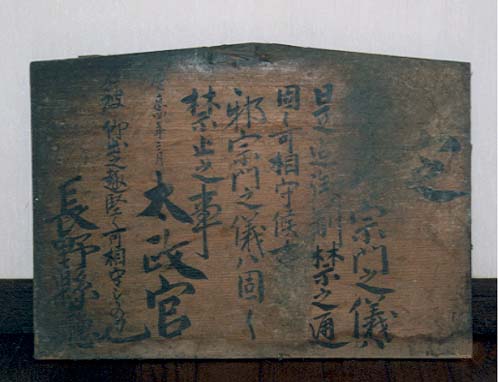 定
宗門之儀ハ
是迄御制禁之通
固ク可相守候事
邪宗門之儀ハ固ク
禁止之事
慶應四年三月
太政官
右被仰出之趣堅可相守もの也
長野縣廳